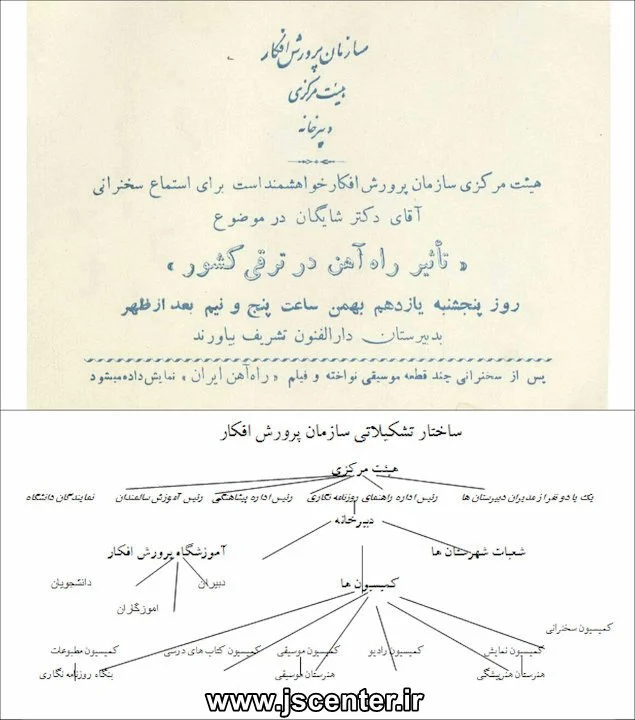 سازمان پرورش افکار
هیئت مرکزی
دبیرخانه
هیئت مرکزی سازمان پرورش افکار خواهشمند است برای استماع سخنرانی
آقای دکتر شایگان در موضوع
« تأثیر راه آهن در ترقی کشور »
روز پنجشنبه یازدهم بهمن ساعت پنج و نیم بعد از ظهر
بدبیرستان دارالفنون تشریف بیاورند
پس از سخنرانی چند قطعه موسیقی نواخته و فیلم «راه آهن ایران» نمایش داده میشود
ساختار تشکیلاتی سازمان پرورش افکار
هیئت مرکزی
یک یا دو نفر از مدیران دبیرستان ها رئیس اداره راهنمای روزنامه نگاری رئیس اداره پیشاهنگی رئیس آموزش سالمندان نمایندگان دانشگاه
دبیرخانه
شعبات شهرستان ها آموزشگاه پرورش افکار
کمیسیون ها دبیران دانشجویان
اموزگزان
کمیسیون سخنرانی
کمیسیون نمایش کمیسیون رادیو کمیسیون موسیقی کمیسیون کتاب های درسی کمیسیون مطبوعات
هنرستان هنرپیشگی هنرستان موسیقی بنگاه روزنامه نگاری
www.jscenter.ir